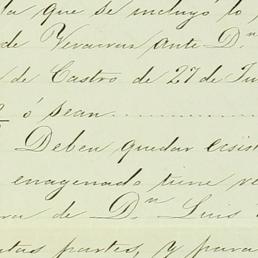 la que se incluyó lo,
de Veraviras ante D.n
de Castro de 27 de Ju
ó sean..........
Deben quedar esist
enagenado tiene re
ra de D.n Luis
ntas partes, y para